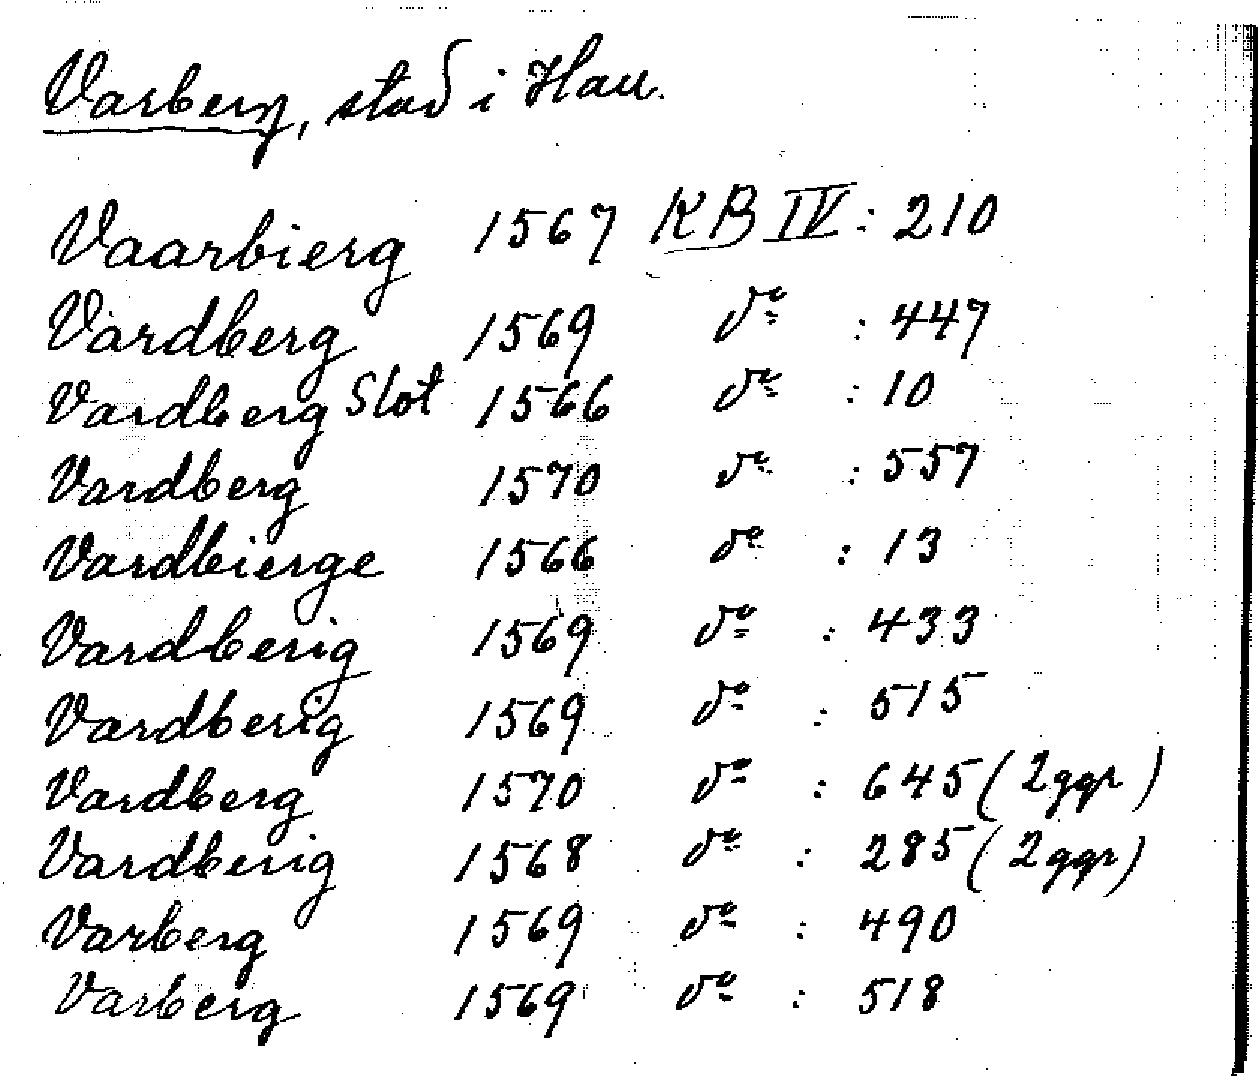 Varberg, stad i Hall.
Vaarbierg 1567 KB IV : 210
Vardberg 1569 do : 447
Vardberg Slot 1566 do : 10
Vardberg 1570 do : 557
Vardbierge 1566 do : 13
Vardberig 1569 do : 433
Vardberig 1569 do : 515
Vardberg 1570 do : 645 (2ggr)
Vardberig 1568 do : 285 (2ggr)
Varberg 1569 do : 490
Varberg 1569 do : 518